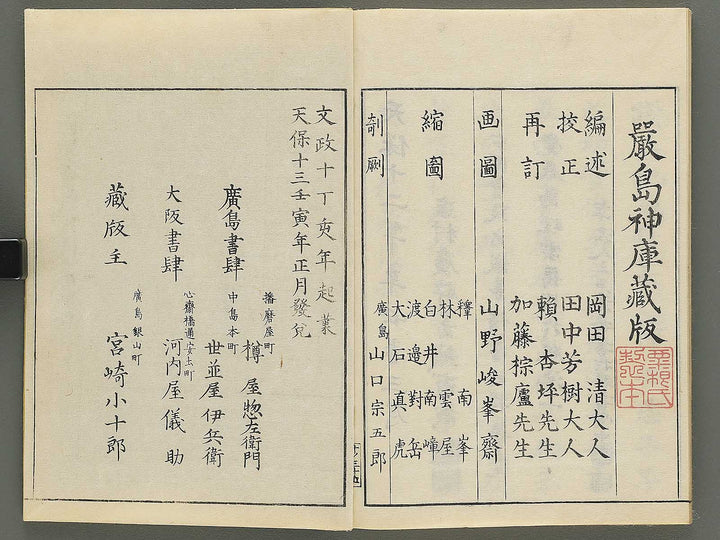 嚴島神庫藏版
編述 岡田 清大人
挍正 田中芳樹大人
再訂 賴 杏坪先生
加藤棕廬先生
画圖 山野峻峯齋
縮圖 釋 南峯
林 雲屋
白井南嶂
渡邉對岳
大石真虎
剞劂 廣島 山口宗五郎
文政十丁亥年起稾
天保十三壬寅年正月發兌
廣島書肆 播磨屋町 樽屋惣左衛門
中島本町 世並屋伊兵衛
大阪書肆 心齋橋通安土町 河内屋儀助
藏版主 廣島銀山町 宮崎小十郎